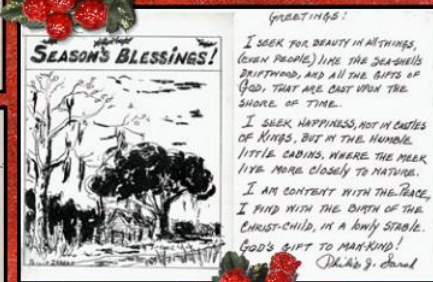 SEASON'S BLESSINGS!
GREETINGS!
I SEEK FOR BEAUTY IN ALL THINGS,
(EVEN PEOPLE) LIKE THE SEA-SHELLS
DRIFTWOOD, AND ALL THE GIFTS OF
GOD, THAT ARE CAST UPON THE
SHORE OF TIME.
I SEEK HAPPINESS, NOT IN CASTLES
OF KINGS, BUT IN THE HUMBLE
LITTLE CABINS, WHERE THE MEEK
LIVE MORE CLOSELY TO NATURE.
I AM CONTENT WITH THE PEACE,
I FIND WITH THE BIRTH OF THE
CHRIST-CHILD, IN A LOWLY STABLE.
GOD'S GIFT TO MAN-KIND!
Philip J.